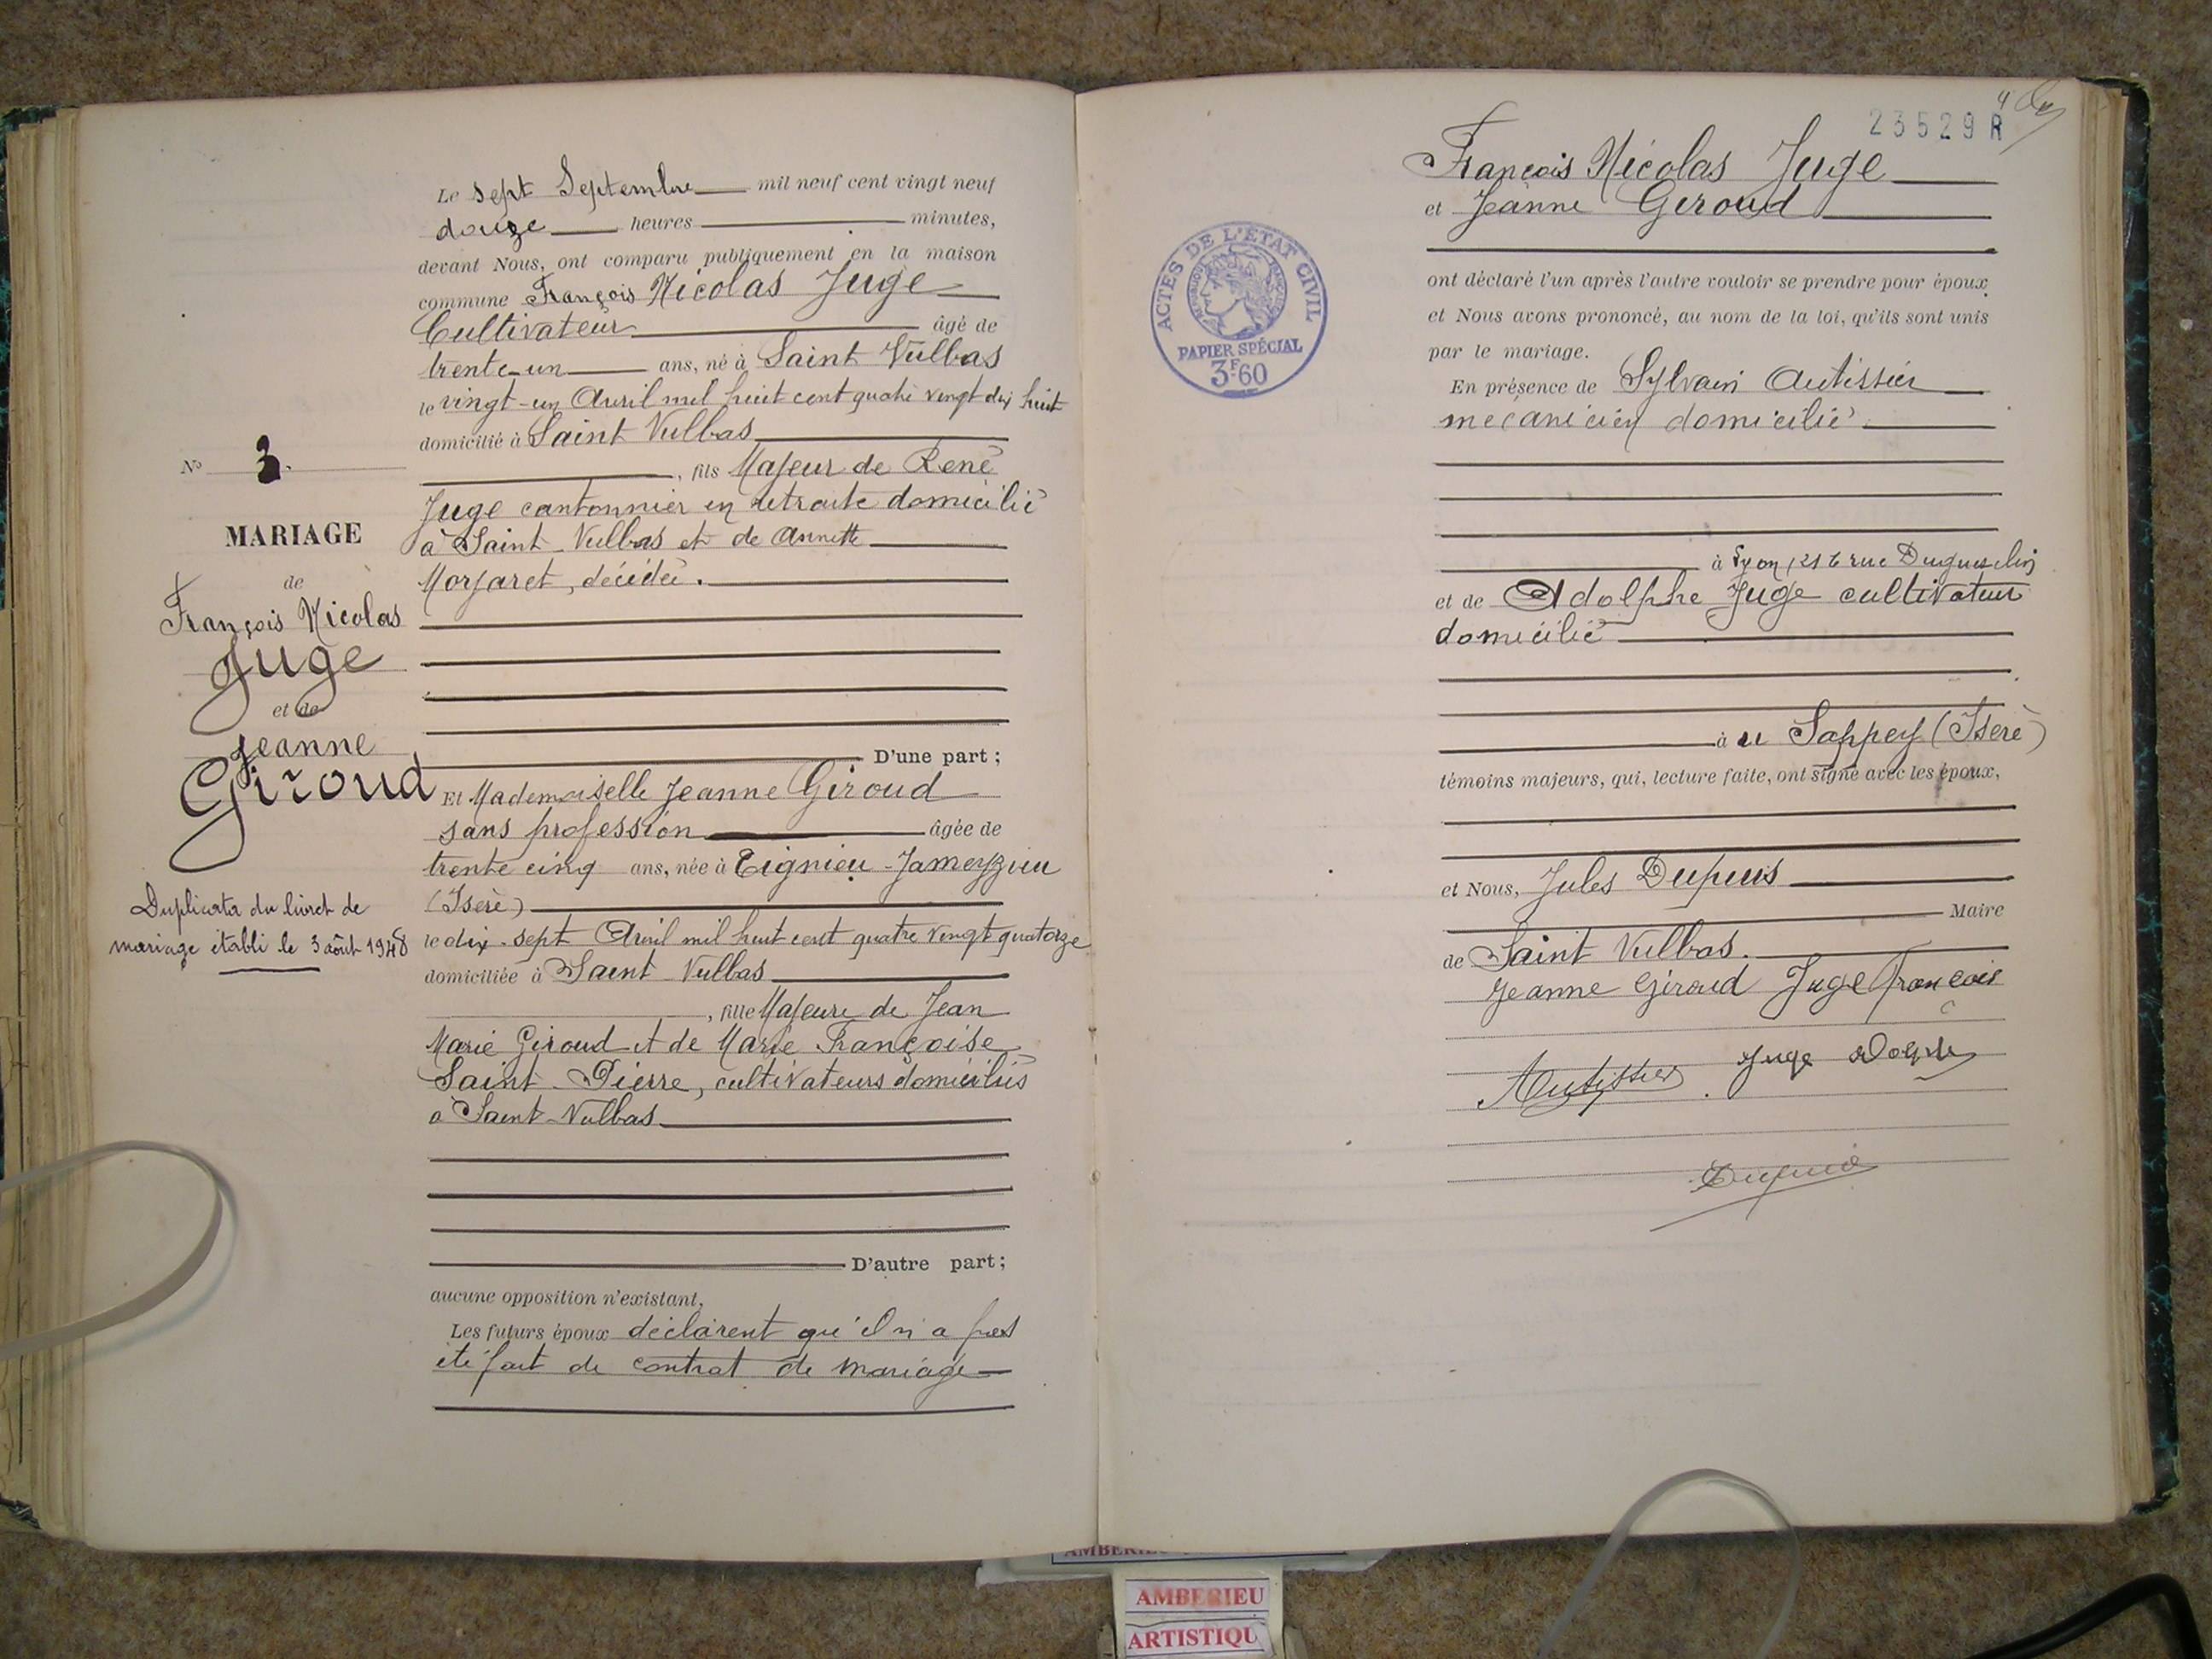 Le sept Septembre mil neuf cent vingt neuf
douze heures minutes,
devant Nous, ont comparu publiquement en la maison
commune François Nicolas Juge
Cultivateur âgé de
trente-un ans, né à Saint Vulbas
le vingt-un Avril mil huit cent quatre vingt dix huit
domicilié à Saint Vulbas
, fils Majeur de René
Juge cantonnier en retraite domicilié
à Saint-Vulbas et de Annette
Morjaret, décédée.
D'une part ;
Et Mademoiselle Jeanne Giroud
sans profession âgée de
trente cinq ans, née à Tignieu-Jameyzieu
(Isère)
le dix-sept Avril mil huit cent quatre vingt quatorze
domiciliée à Saint Vulbas
, fille Majeure de Jean
Marie Giroud et de Marie Françoise
Saint-Pierre, cultivateurs domiciliés
à Saint-Vulbas
D'autre part ;
aucune opposition n'existant,
Les futurs époux déclarent qu'il n'a pas
été fait de contrat de mariage
No 3.
MARIAGE
de
François Nicolas
Juge
et de
Jeanne
Giroud
Duplicata du livret de
mariage établi le 3 août 1948
23529 R
François Nicolas Juge
et Jeanne Giroud
ont déclaré l'un après l'autre vouloir se prendre pour époux
et Nous avons prononcé, au nom de la loi, qu'ils sont unis
par le mariage.
En présence de Sylvain Autissier
mécanicien domicilié
à Lyon, 216 rue Duguesclin
et de Adolphe Juge cultivateur
domicilié
à u Sappey (Isère)
témoins majeurs, qui, lecture faite, ont signé avec les époux,
et Nous, Jules Dupuis
Maire
de Saint Vulbas.
Jeanne Giroud Juge François
Autissier Juge Adolphe
Dupuis
ACTES DE L'ÉTAT CIVIL
RÉPUBLIQUE FRANÇAISE
PAPIER SPÉCIAL
3F60
AMBERIEU
ARTISTIQU